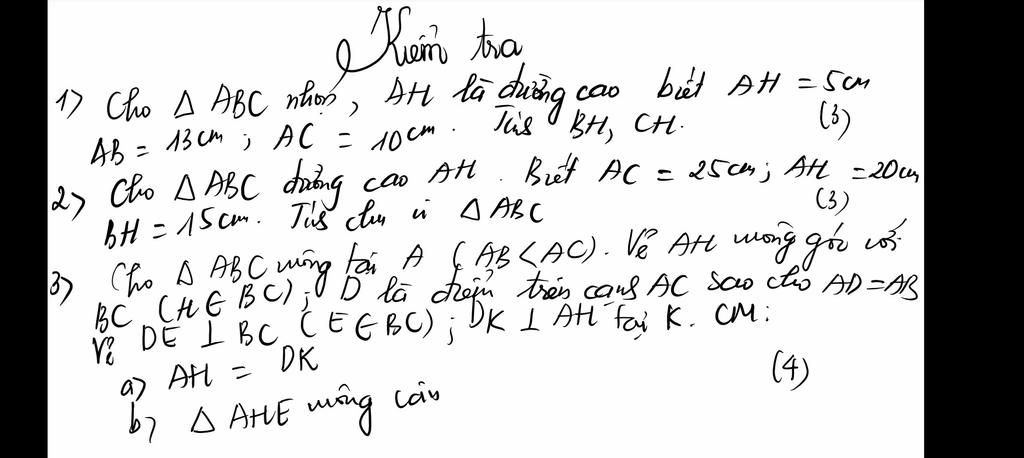 Kiểm tra
1) Cho Δ ABC nhọn, AH là đường cao biết AH = 5cm
AB = 13cm ; AC = 10cm. Tính BH, CH. (3)
2) Cho Δ ABC đường cao AH. Biết AC = 25cm ; AH = 20cm
BH = 15cm. Tính chu vi Δ ABC (3)
3) Cho Δ ABC vuông tại A (AB < AC). Vẽ AH vuông góc với
BC (H ∈ BC) ; D là điểm trên cạnh AC sao cho AD = AB
Vẽ DE ⊥ BC (E ∈ BC) ; DK ⊥ AH tại K. CM:
a) AH = DK (4)
b) Δ AHE vuông cân